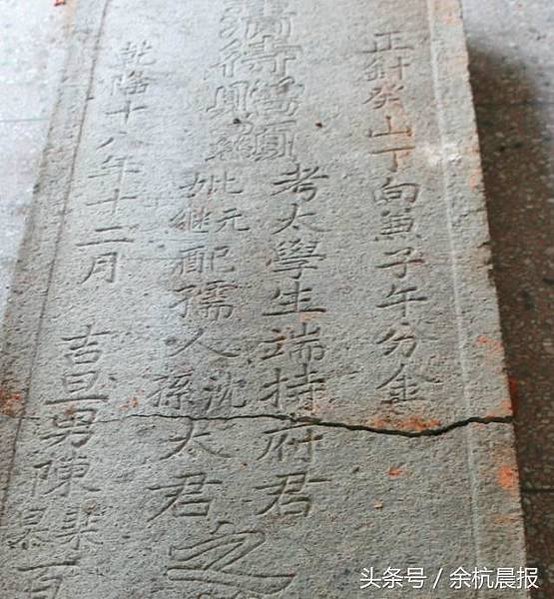 正針癸山丁向兼子午分金
考太學生端持府君
妣元配
妣継配
孺人
沈
孫
太君
之
乾隆十八年十二月 吉旦男陳
百
头条号 / 余杭晨报